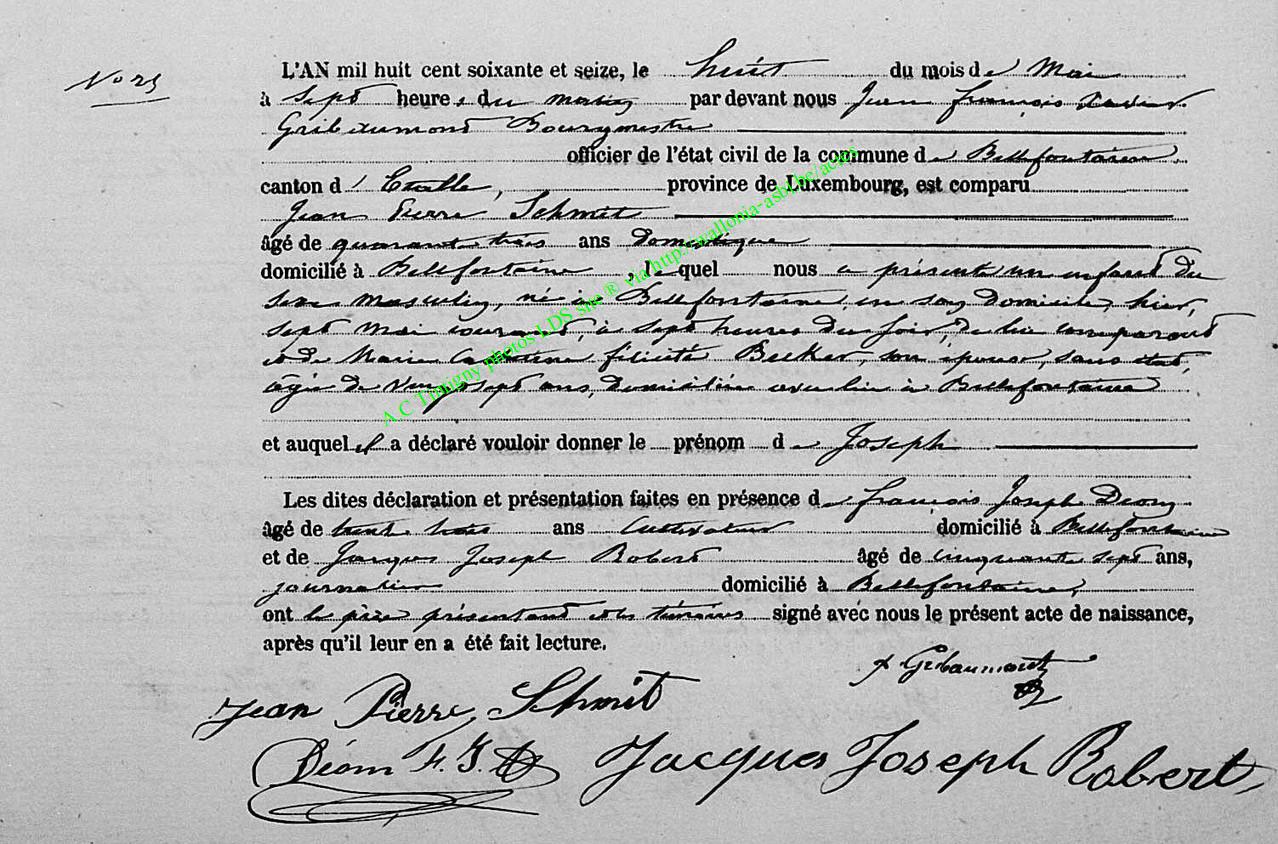 No 25
L'AN mil huit cent soixante et seize, le huit du mois de Mai
à sept heures du matin par devant nous Jean François Xavier
Gribaumont Bourgmestre
officier de l'état civil de la commune de Bellefontaine
canton d'Etalle, province de Luxembourg, est comparu
Jean Pierre Schmit
âgé de quarante trois ans Domestique
domicilié à Bellefontaine, lequel nous a présenté un enfant du
sexe masculin, né à Bellefontaine, en son Domicile, hier,
sept Mai courant, à sept heures du soir, de lui comparant
et de Marie Catherine félicité Becker, son épouse, sans état,
âgée de vingt sept ans, domiciliée avec lui à Bellefontaine
et auquel il a déclaré vouloir donner le prénom de Joseph
Les dites déclaration et présentation faites en présence de françois Joseph Déom
âgé de trente trois ans Cultivateur domicilié à Bellefontaine
et de Jacques Joseph Robert âgé de cinquante sept ans,
journalier domicilié à Bellefontaine,
ont le père présentant et les témoins signé avec nous le présent acte de naissance,
après qu'il leur en a été fait lecture.
Gribaumont
Jean Pierre Schmit
Déom F. J.
Jacques Joseph Robert
A C Tintigny photos LDS site ® via http://wallonia-asbl.be/actes